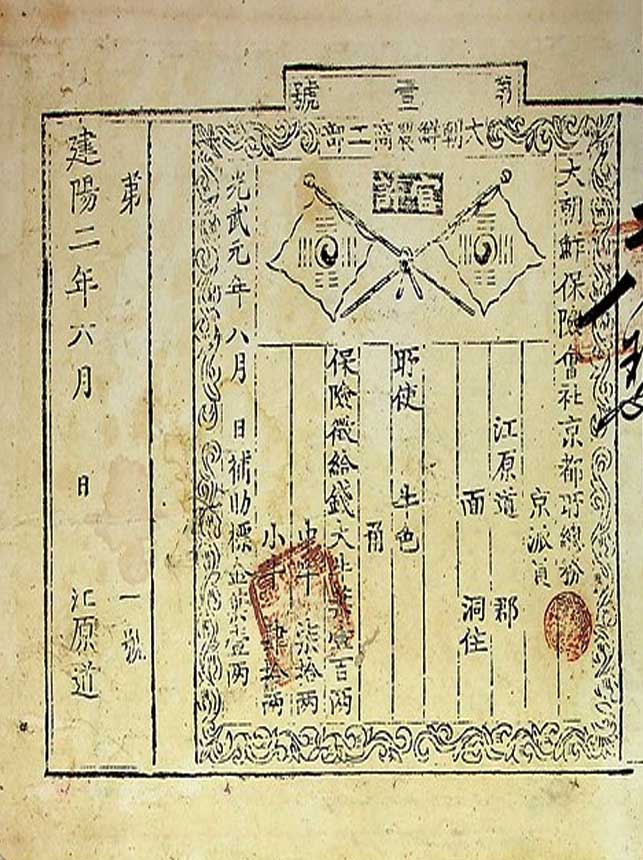 第壹號
大朝鮮農商工部
大朝鮮保險會社京都所總務
京派員
江原道 郡
面 洞住
所使 牛色
角
保險徵給錢大牛葉壹百兩
中牛 柒拾兩
小牛 肆拾兩
光武元年 八月 日補助標金葉壹兩
第 一號
建陽二年六月 日 江原道